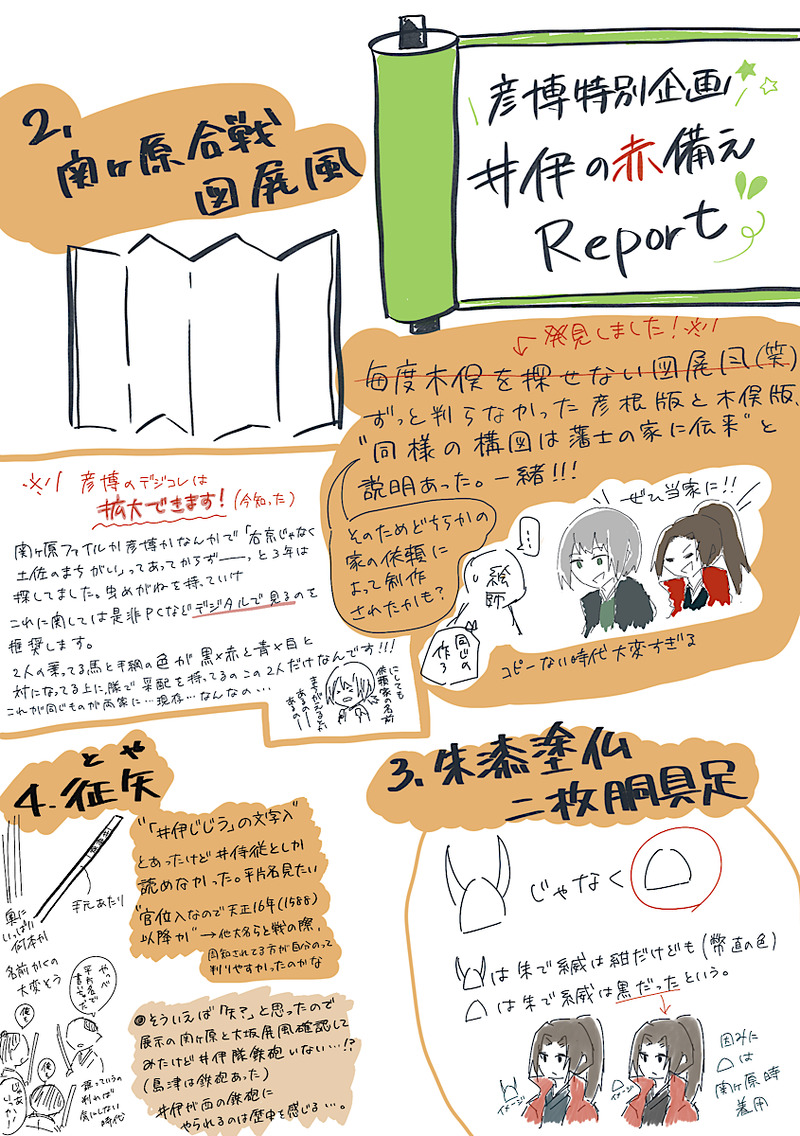 彦博特別企画
井伊の赤備え
Report
2.
関ヶ原合戦
図屏風
発見しました!※1
毎度木俣を探せない図屏風(笑)
ずっと判らなかった彦根版と木俣版、
"同様の構図は藩士の家に伝来"と
説明あった。一緒!!!
そのためどちらかの
家の依頼に
よって制作
されたかも?
ぜひ当家に!!
…
絵師
同じの
作ろ
コピーない時代大変すぎる
※1 彦博のデジコレは
拡大できます!(今知った)
関ヶ原ファイルか彦博かなんかで「右京じゃなく
土佐のまちがい」ってあってからず——っ、と3年は
探してました。虫めがねを持っていけ
これに関しては是非PCなどデジタルで見るのを
推奨します。
2人の乗ってる馬と手綱の色が黒×赤と青×白と
対になってる上に、隊で采配を持ってるのこの2人だけなんです!!!
これが同じものが両家に…現存…なんなの…
にしても
依頼家の名前
まちがえるとか
あるの——
3.朱漆塗仏
二枚胴具足
じゃなく
は朱で糸威は紺だけども(幣直の色)
は朱で糸威は黒だったという。
イメージ
イメージ
因みに
は
関ヶ原時
着用
4.征矢
とや
"「井伊じじう」の文字入"
とあったけど井侍従としか
読めなかった。平片名見たい
"官位入なので天正16年(1588)
以降か"→他大名らと戦の際、
周知されてる方が自分のって
判りやすかったのかな
手元あたり
奥に
いっぱい
何本か
名前かくの
大変そう
やっべ
平片名で
書いちったで
俺も
俺も
じゃあいっか!
誰っていうの
判れば
気にしない
時代
◎そういえば「矢?」と思ったので
展示の関ヶ原と大坂屏風確認して
みたけど井伊隊鉄砲いない…!?
(島津は鉄砲あった)
井伊が西の鉄砲に
やられてるのは歴史を感じる…。